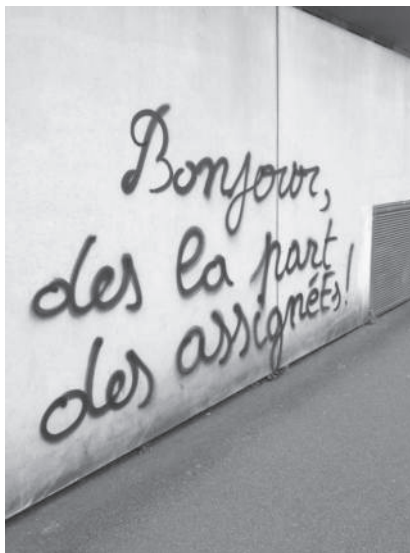 Bonjour,
des la part
des assignéEs!